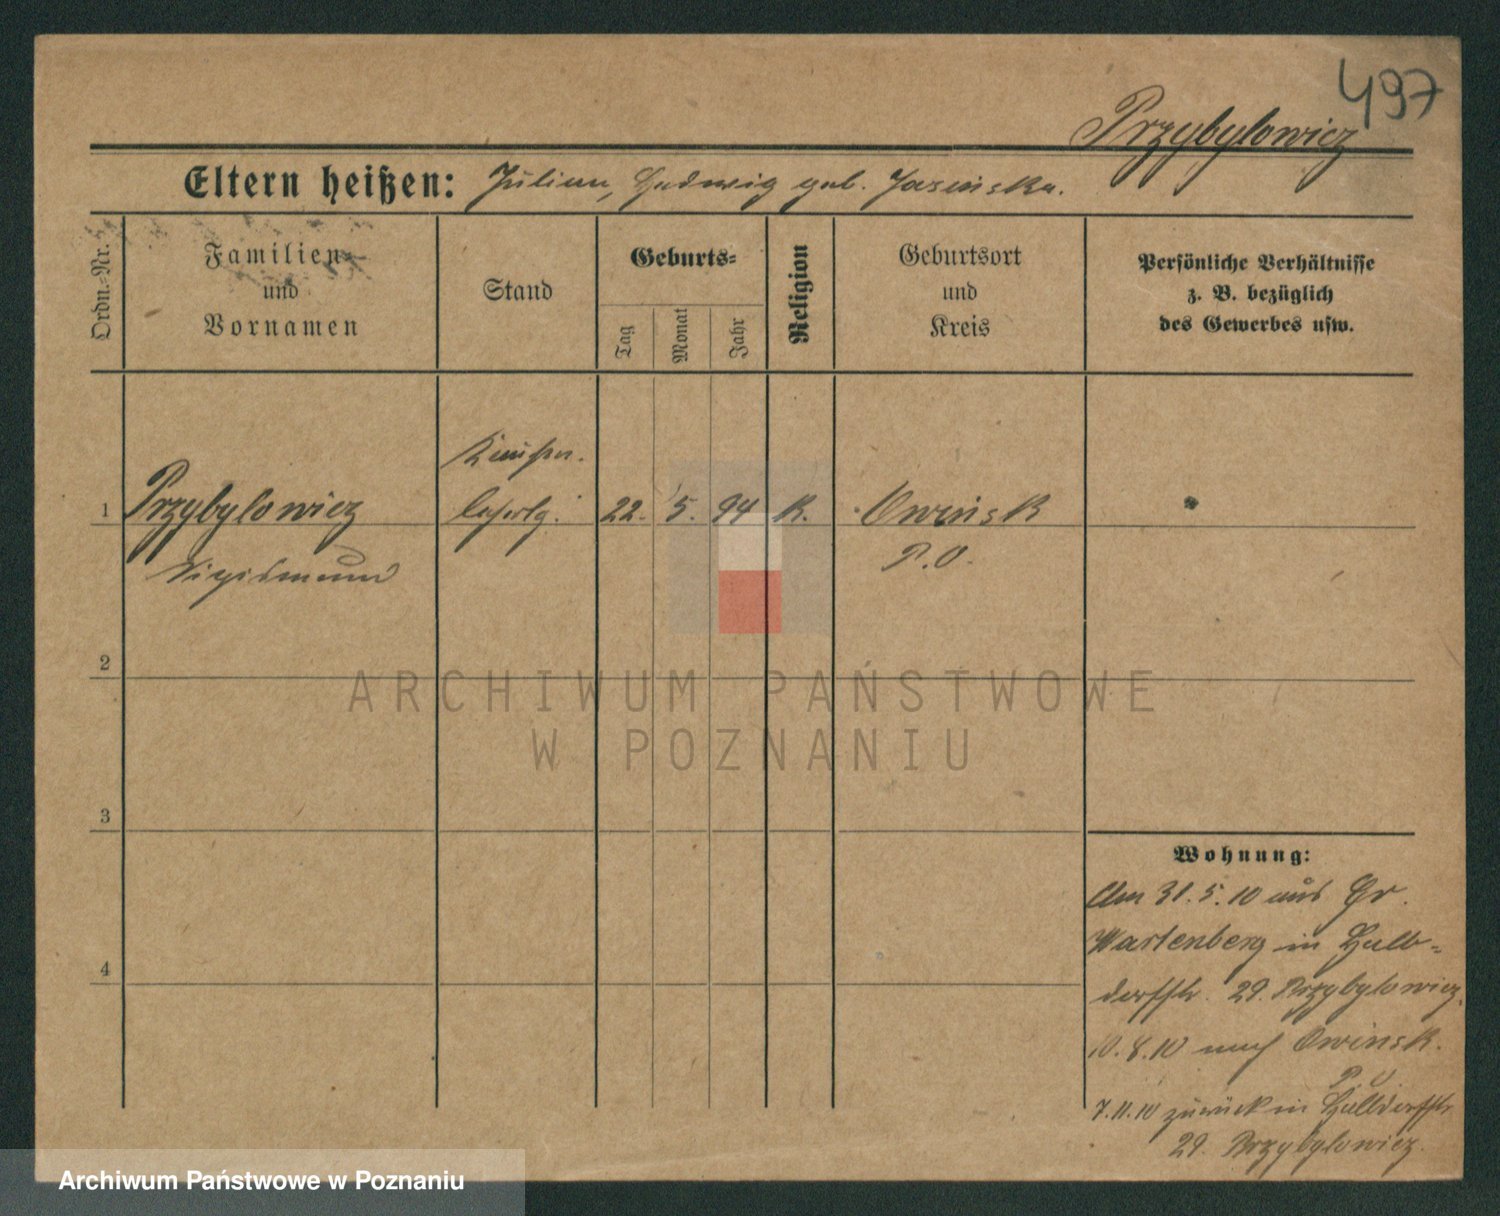 497
Przybylowicz
Eltern heißen: Julian, Hedwig geb. Jasinska.
Ordn.-Nr.
Familien-
und
Vornamen
Stand
Geburts-
Tag
Monat
Jahr
Religion
Geburtsort
und
Kreis
Persönliche Verhältnisse
z. B. bezüglich
des Gewerbes usw.
1
Przybylowicz
Sigismund
Kaufm.
lehrlg.
22. 5. 94 K.
Owinsk
P. O.
2
3
4
Wohnung:
Am 31.5.10 aus Gr.
Wartenberg in Halb-
dorfstr. 29. Przybylowicz.
10.8.10 nach Owinsk.
P. O
7.11.10 zurück in Halbdorfstr
29. Przybylowicz.
ARCHIWUM PAŃSTWOWE
W POZNANIU
Archiwum Państwowe w Poznaniu